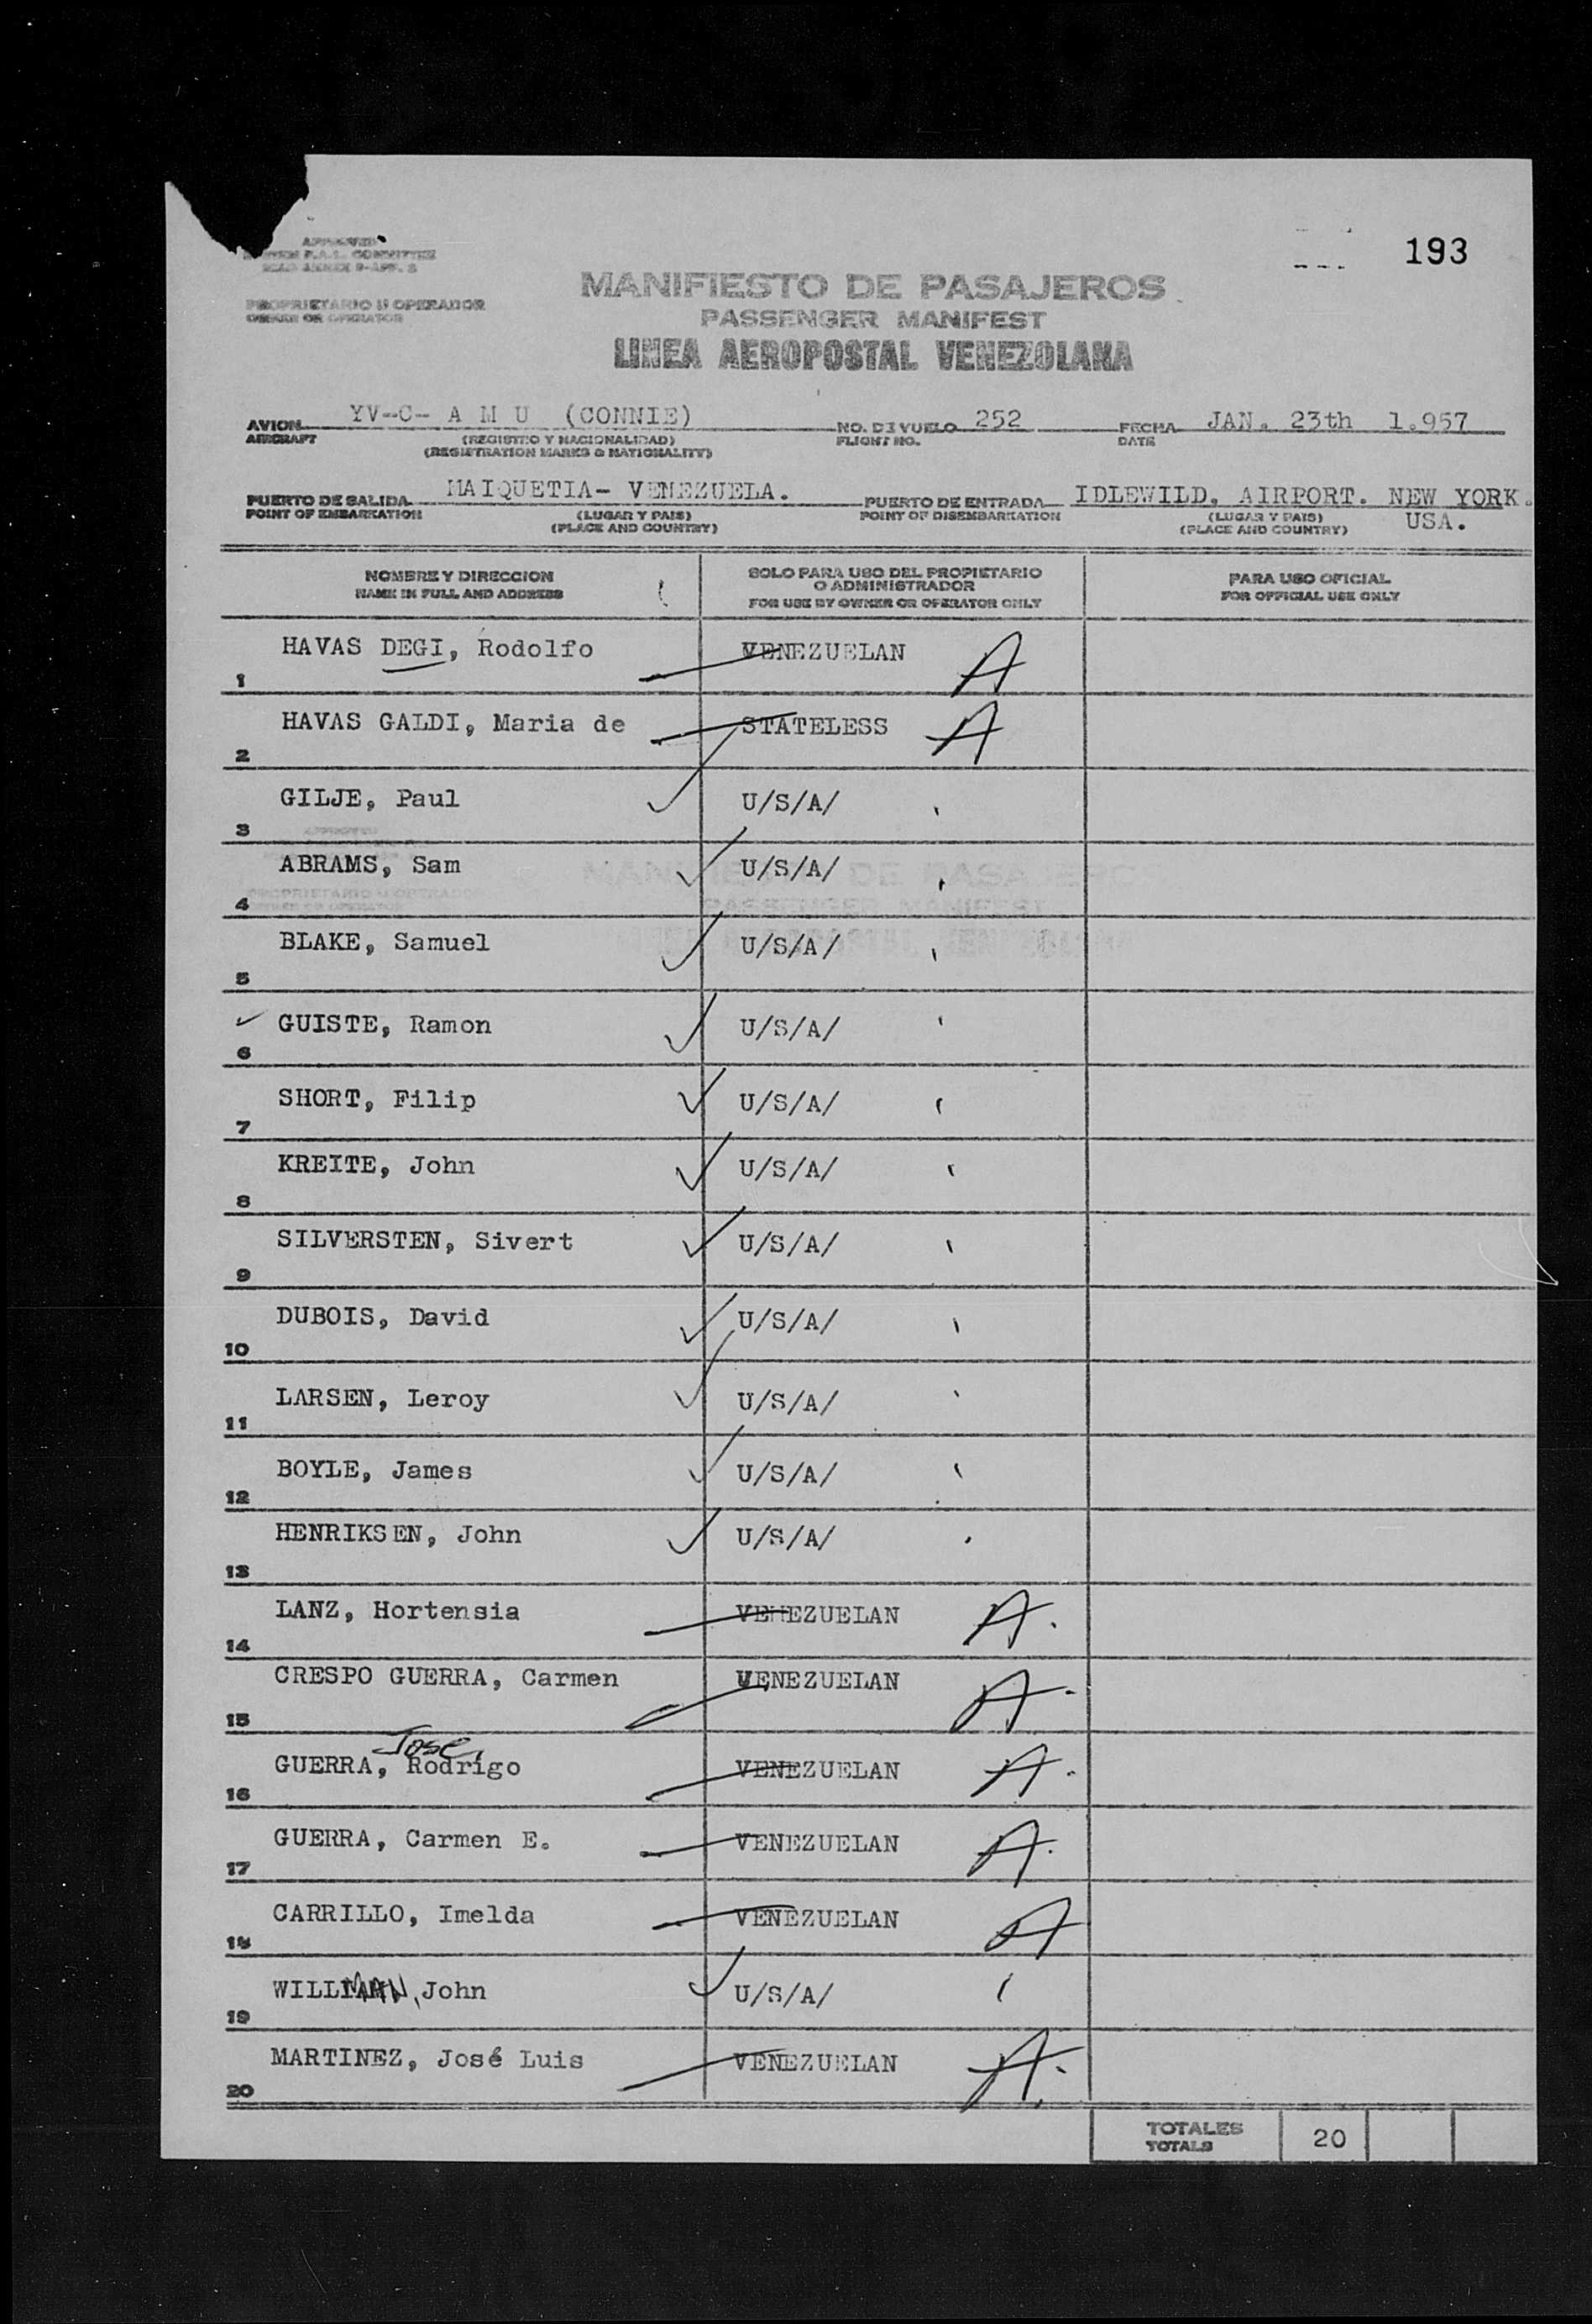 193
APPROVED
SYSTEM F.A.L. COMMITTEE
ICAO ANNEX 9-APP. 2
PROPRIETARIO U OPERADOR
OWNER OR OPERATOR
MANIFIESTO DE PASAJEROS
PASSENGER MANIFEST
LINEA AEROPOSTAL VENEZOLANA
AVION YV-C- A M U (CONNIE) NO. DE VUELO 252 FECHA JAN. 23th 1.957
AIRCRAFT (REGISTRO Y NACIONALIDAD) FLIGHT NO. DATE
(REGISTRATION MARKS & NATIONALITY)
PUERTO DE SALIDA MAIQUETIA- VENEZUELA. PUERTO DE ENTRADA IDLEWILD, AIRPORT. NEW YORK.
POINT OF EMBARKATION (LUGAR Y PAIS) POINT OF DISEMBARKATION (LUGAR Y PAIS) USA.
(PLACE AND COUNTRY) (PLACE AND COUNTRY)
NOMBRE Y DIRECCION SOLO PARA USO DEL PROPIETARIO PARA USO OFICIAL
NAME IN FULL AND ADDRESS O ADMINISTRADOR FOR OFFICIAL USE ONLY
FOR USE BY OWNER OR OPERATOR ONLY
1 HAVAS DEGI, Rodolfo VENEZUELAN A
2 HAVAS GALDI, Maria de STATELESS A
3 GILJE, Paul U/S/A/
4 ABRAMS, Sam U/S/A/
5 BLAKE, Samuel U/S/A/
6 GUISTE, Ramon U/S/A/
7 SHORT, Filip U/S/A/
8 KREITE, John U/S/A/
9 SILVERSTEN, Sivert U/S/A/
10 DUBOIS, David U/S/A/
11 LARSEN, Leroy U/S/A/
12 BOYLE, James U/S/A/
13 HENRIKSEN, John U/S/A/
14 LANZ, Hortensia VENEZUELAN A.
15 CRESPO GUERRA, Carmen VENEZUELAN A.
Jose,
16 GUERRA, Rodrigo VENEZUELAN A.
17 GUERRA, Carmen E. VENEZUELAN A.
18 CARRILLO, Imelda VENEZUELAN A
19 WILLMAN, John U/S/A/
20 MARTINEZ, José Luis VENEZUELAN A.
TOTALES 20
TOTALS